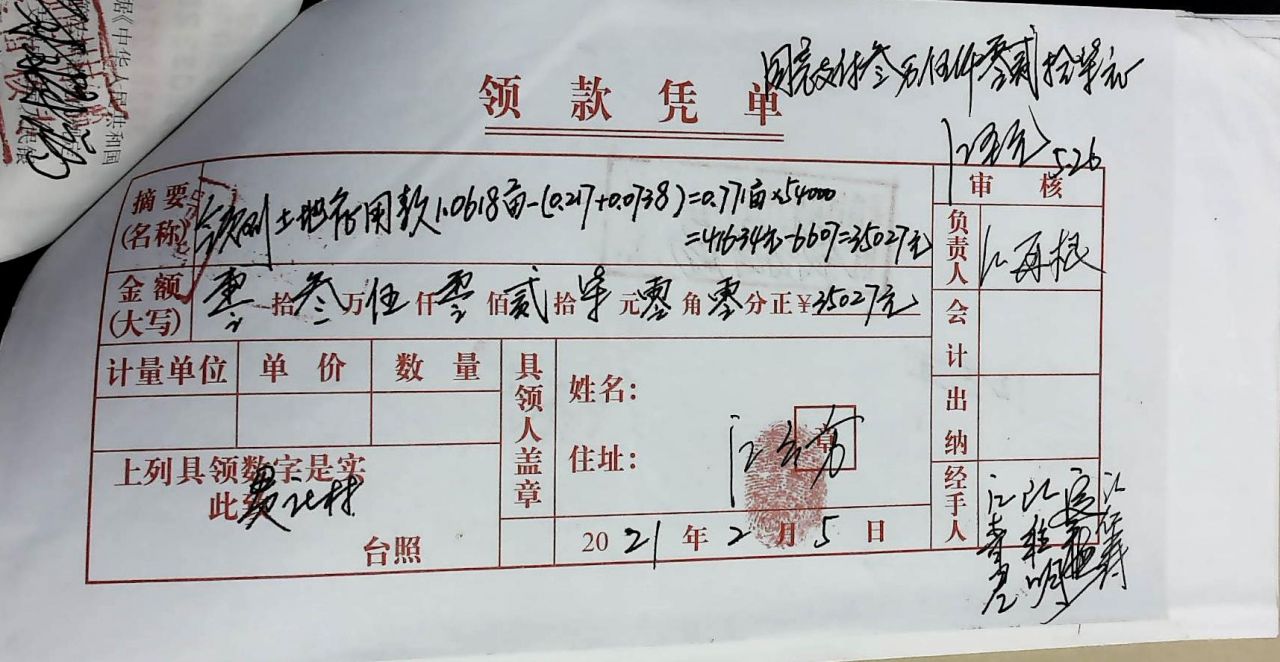 据《中华人民共和国
领款凭单
同意支付叁万伍仟零贰拾柒元
5.26
摘要(名称) 土地征用款1.0618亩-(0.217+0.0738)=0.771亩×54000
=41634元-6607=35027元
金额(大写) 零拾叁万伍仟零佰贰拾柒元零角零分正¥35027元
计量单位 单价 数量
具领人盖章
姓名:
住址:
章
上列具领数字是实
此致
台照
2021年2月5日
审核
负责人 江再根
会计
出纳
经手人